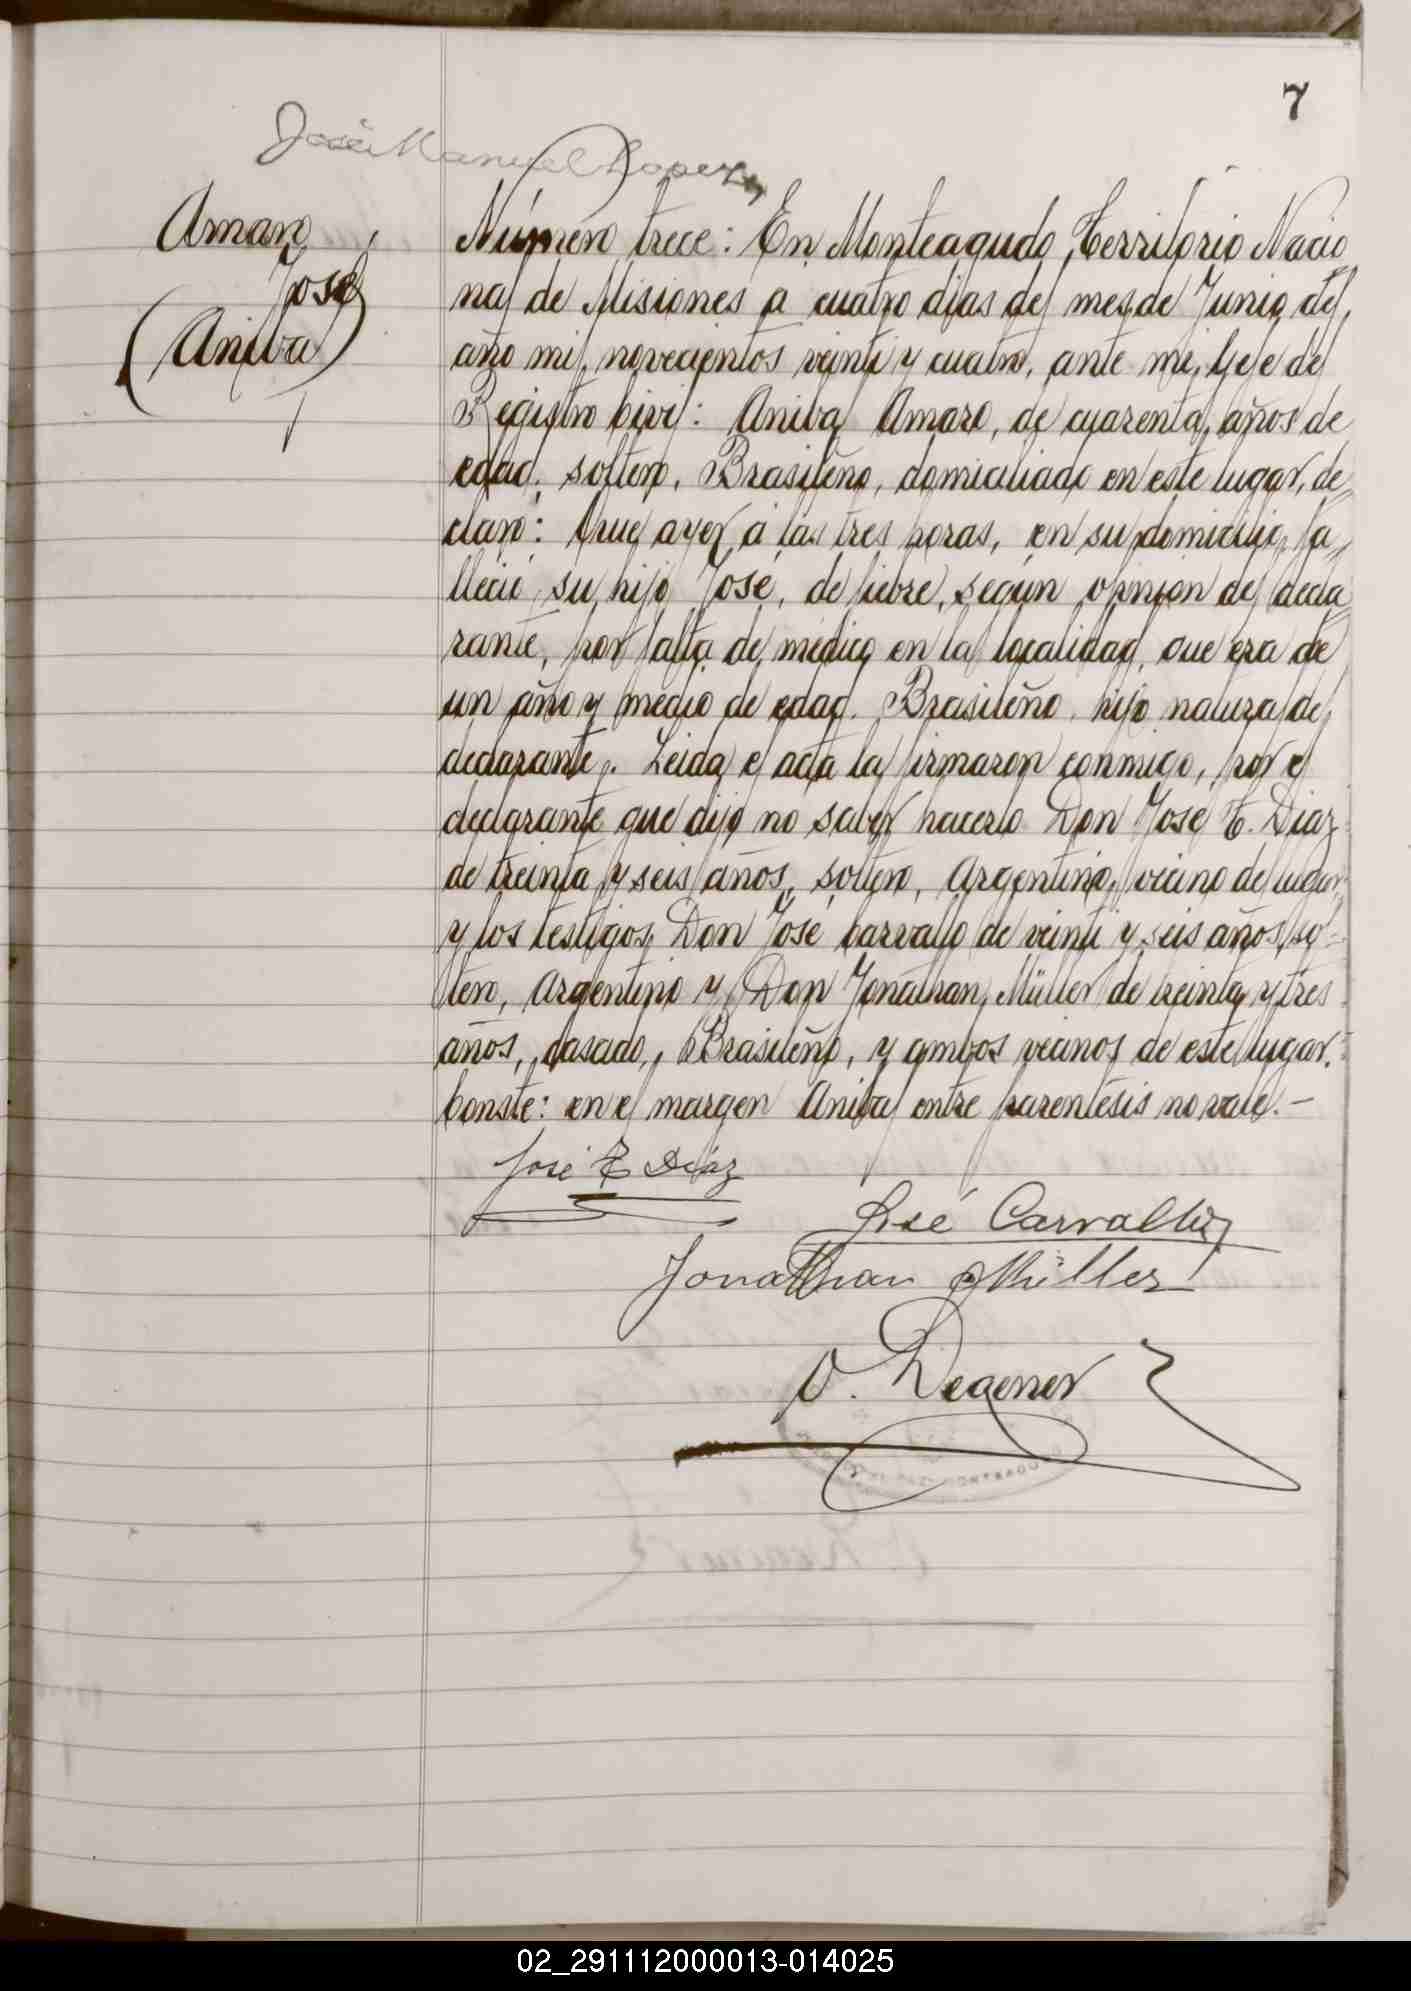 7
José Manuel Lopez
Amaro,
José
(Aniba)
Número trece: En Monteagudo, Territorio Nacio
nal de Misiones a cuatro dias del mes de Junio del
año mil novecientos veinti y cuatro, ante mi, Jefe del
Registro Civil: Anibal Amaro, de cuarenta años de
edad, soltero, Brasileño, domiciliado en este lugar, de
claro: Que ayer á las tres horas, en su domicilio, fa
lleció su hijo José, de fiebre, según opinion del decla
rante, por falta de médico en la localidad, que era de
un año y medio de edad. Brasileño, hijo natural del
declarante. Leida el acta la firmaron conmigo, por el
declarante que dijo no saber hacerlo Don José E. Diaz
de treinta y seis años, soltero, Argentino, vecino del lugar,
y los testigos, Don José Carvallo de veinti y seis años, sol-
tero, Argentino y Don Jonathan Müller de treinta y tres
años, casado, Brasileño, y ambos vecinos de este lugar.
Conste: en el margen Aniba entre parentésis no vale.-
José E Diaz
José Carvallo
Jonathan Müller
O. Degener
02_291112000013-014025